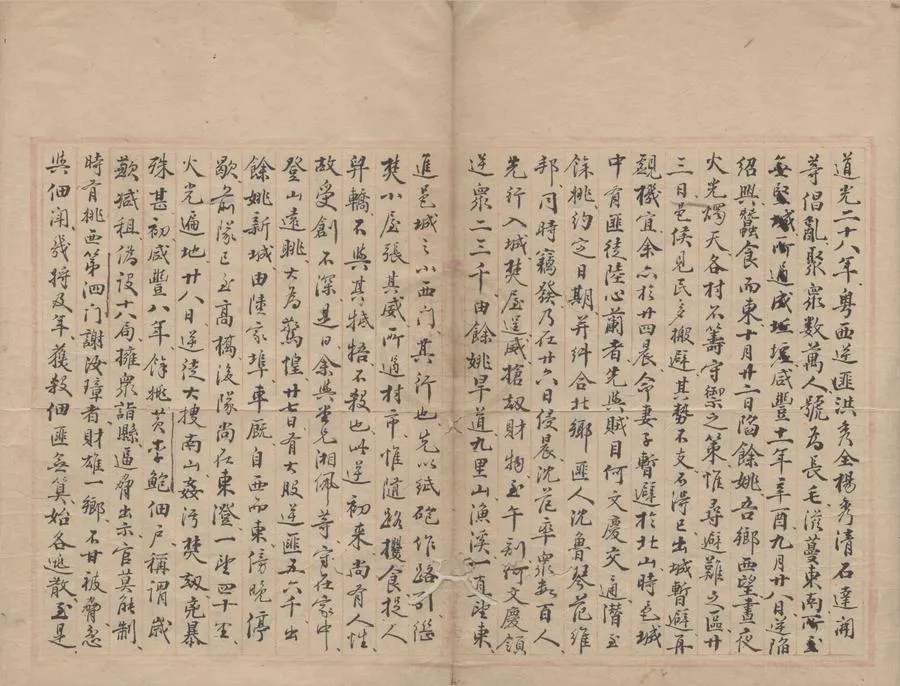 道光二十八年粵西逆匪洪秀全楊秀清石達開
等倡亂聚眾数萬人號為長毛滋蔓東南所至
無堅城所過成坵墟咸豐十一年辛酉九月廿八日逆陷
紹興蠶食而東十月廿二日陷餘姚吾鄉西望晝夜
火光燭天各村不籌守禦之策惟尋避難之區廿
三日邑侯見民多搬避其勢不支不得已出城暫避再
觀機宜余亦於廿四晨令妻子暫避於北山時邑城
中有匪徒陸心蘭者先與賊目何文慶交通潛至
餘姚約定日期并糾合北鄉匪人沈魯琴范維
邦同時竊發乃在廿六日侵晨沈范率眾數百人
先行入城焚屋逞威搶劫財物至午刻何文慶領
逆眾二三千由餘姚早道九里山漁溪一直望東
進邑城之小西門其行也先以紙砲作路引繼
焚小屋張其威所過村市惟隨路攫食捉人
舁轎不與其牴牾不殺也此逆初来尚有人性
故受創不深是日余與堂兄湘佩等守在家中
登山遠眺大為驚惶廿七日有大股逆匪五六千出
餘姚新城由陸家埠車厩自西而東傍晚停
歇前隊已至高橋後隊尚在東澄一望四十里
火光遍地廿八日逆徒大搜南山姦污焚劫兇暴
殊甚初咸豐八年餘姚黃李鮑佃户稱謂歲
歉減租偽設十八局擁眾詣縣逼脅出示官莫能制
時有姚西第泗门謝汝璋者財雄一鄉不甘被脅忿
與佃鬧幾將及年獲殺佃匪無算始各逃散至是